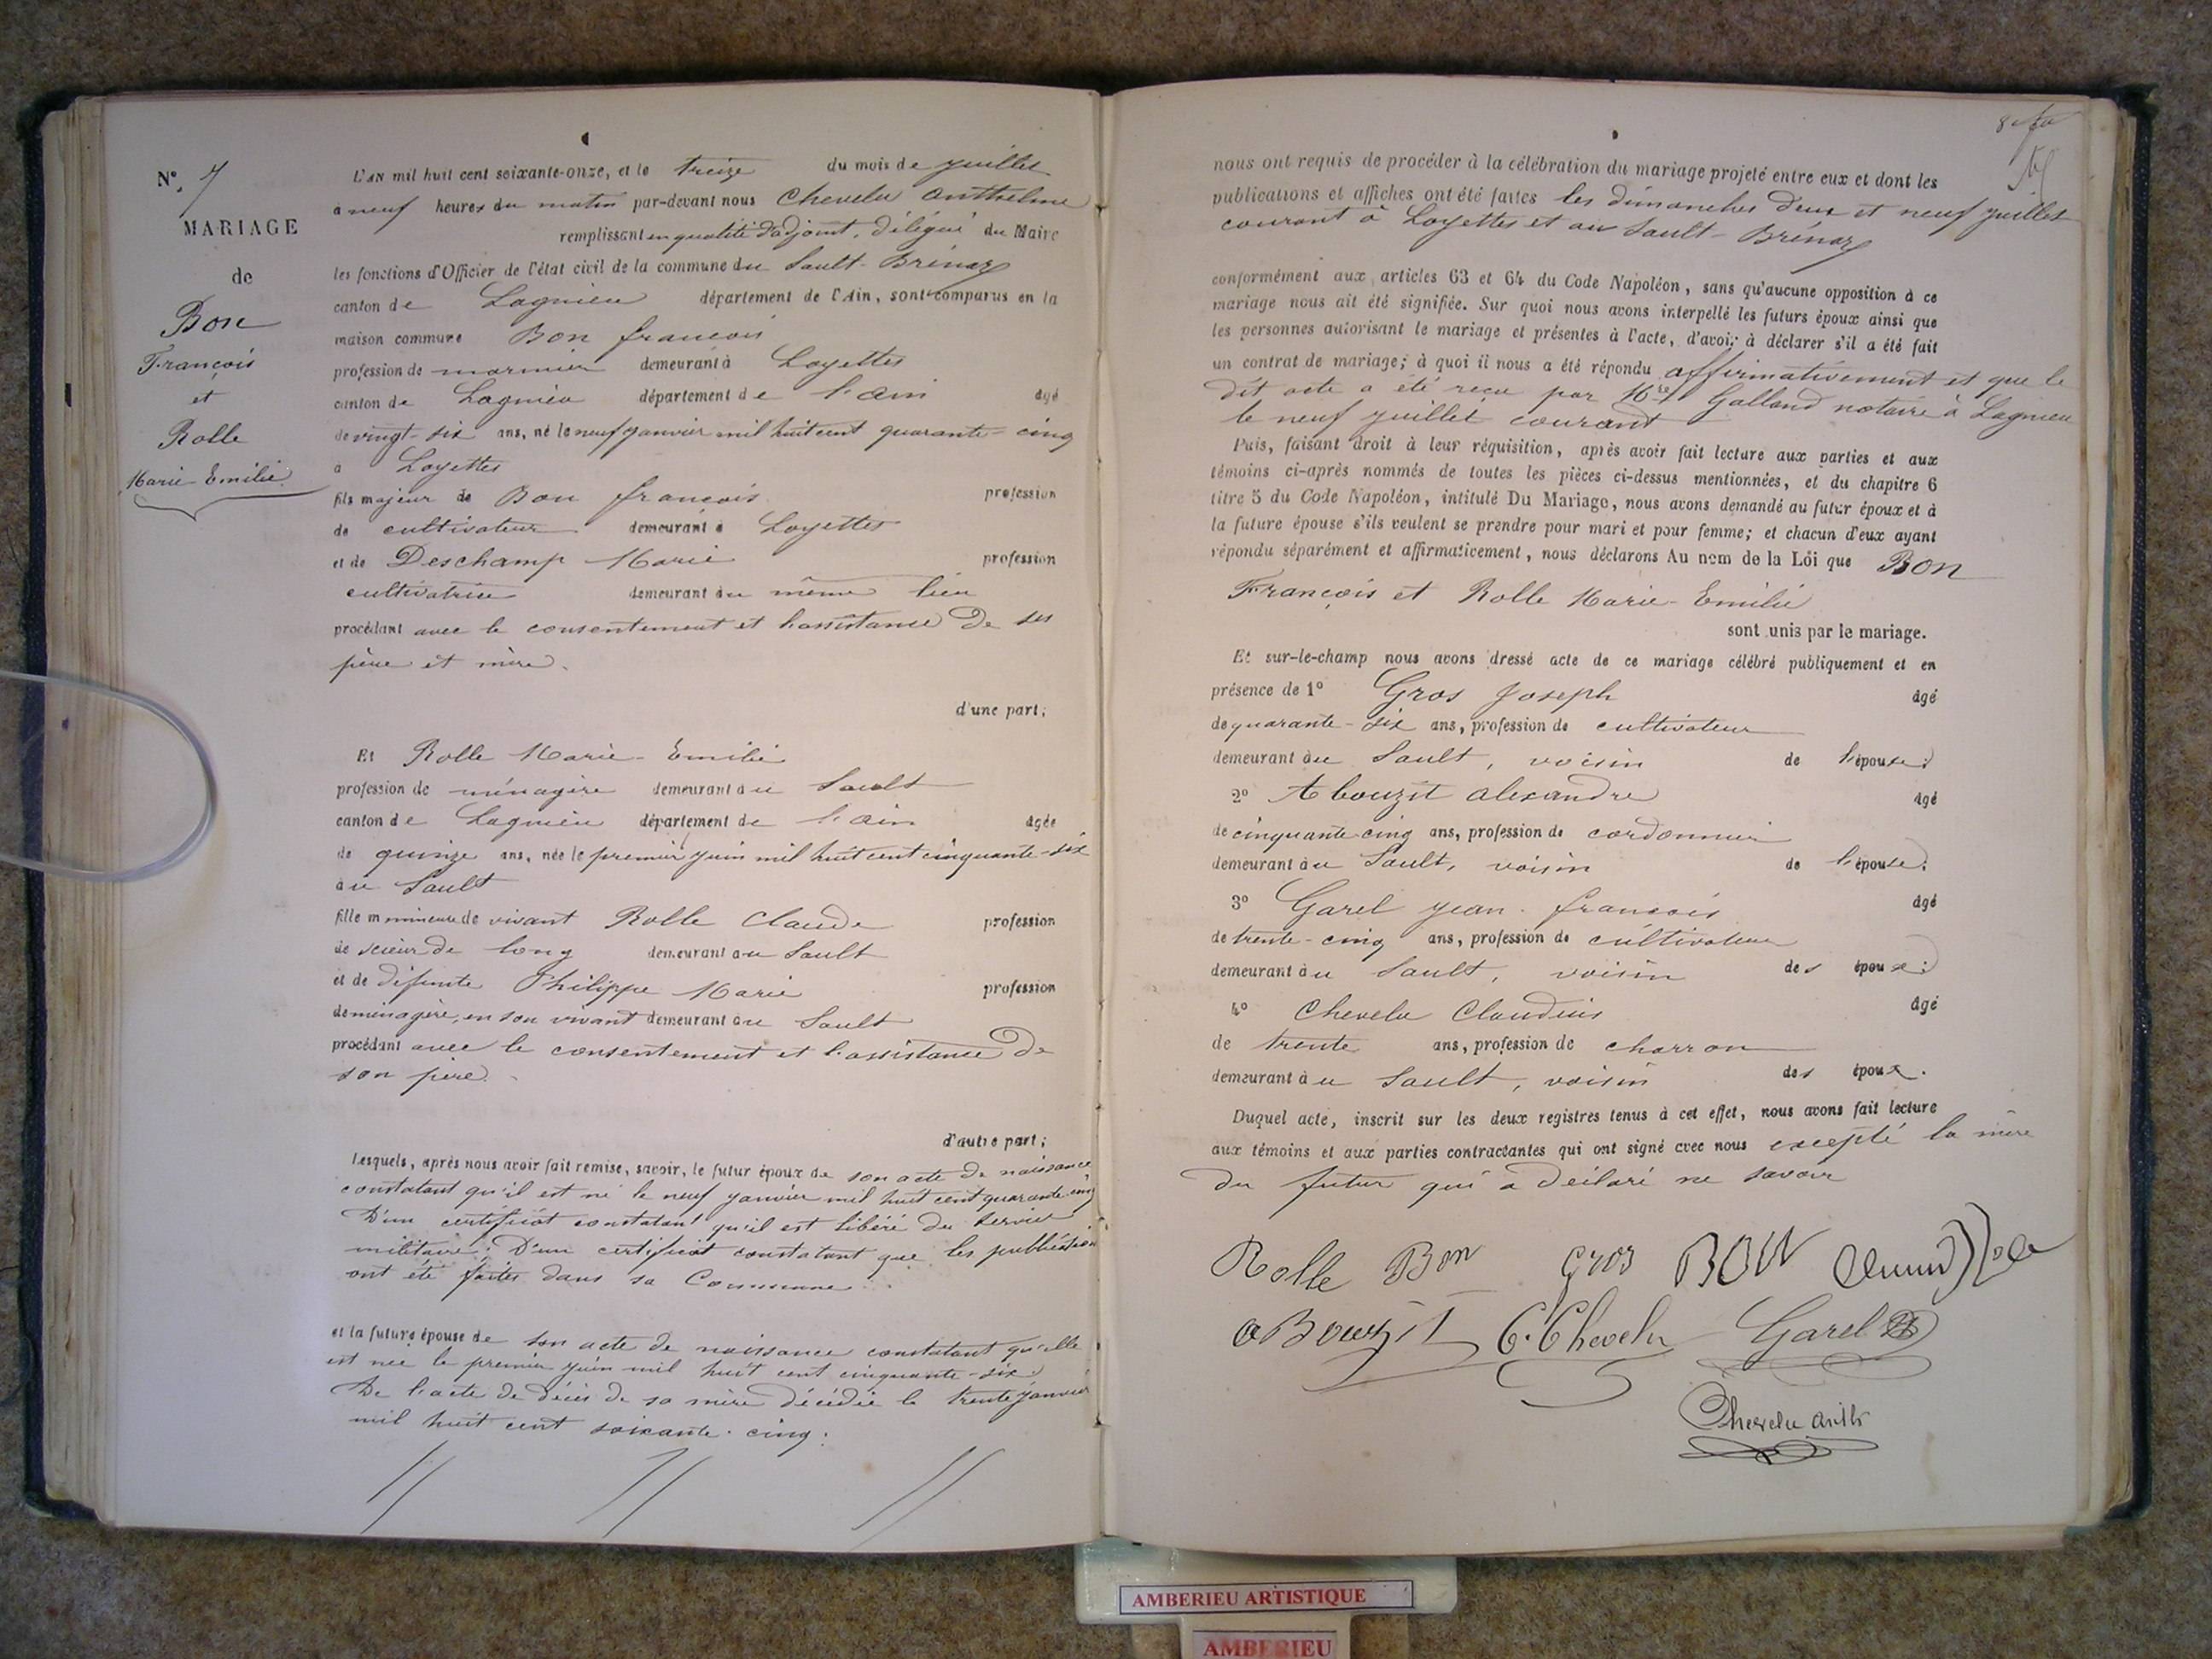 N°. 7
MARIAGE
de
Bon
François
et
Rolle
Marie-Emilie
L'AN mil huit cent soixante-onze, et le treize du mois de juillet
à neuf heures du matin par-devant nous Chevelu Anthelme
remplissant en qualité d'adjoint, délégué du Maire
les fonctions d'Officier de l'état civil de la commune du Sault-Brénaz
canton de Lagnieu département de l'Ain, sont comparus en la
maison commune Bon françois
profession de marinier demeurant à Loyettes
canton de Lagnieu département de l'ain âgé
de vingt-six ans, né le neuf janvier mil huit cent quarante-cinq
à Loyettes
fils majeur de Bon françois profession
de cultivateur demeurant à Loyettes
et de Deschamp Marie profession
cultivatrice demeurant au même lieu
procédant avec le consentement et l'assistance de ses
père et mère.
d'une part;
Et Rolle Marie-Emilie
profession de ménagère demeurant au Sault
canton de Lagnieu département de l'ain âgée
de quinze ans, née le premier juin mil huit cent cinquante-six
au Sault
fille mineure de vivant Rolle Claude profession
de scieur de long demeurant au Sault
et de défunte Philippe Marie profession
de ménagère, en son vivant demeurant au Sault
procédant avec le consentement et l'assistance de
son père.
d'autre part;
Lesquels, après nous avoir fait remise, savoir, le futur époux de son acte de naissance
constatant qu'il est né le neuf janvier mil huit cent quarante-cinq
D'un certificat constatant qu'il est libéré du service
militaire; D'un certificat constatant que les publication
ont été faites dans sa Commune.
et la future épouse de son acte de naissance constatant qu'elle
est née le premier juin mil huit cent cinquante-six
De l'acte de décès de sa mère décédée le trente janvier
mil huit cent soixante-cinq:
nous ont requis de procéder à la célébration du mariage projeté entre eux et dont les
publications et affiches ont été faites les dimanches deux et neuf juillet
courant à Loyettes et au Sault-Brénaz
conformément aux articles 63 et 64 du Code Napoléon, sans qu'aucune opposition à ce
mariage nous ait été signifiée. Sur quoi nous avons interpellé les futurs époux ainsi que
les personnes autorisant le mariage et présentes à l'acte, d'avoir à déclarer s'il a été fait
un contrat de mariage; à quoi il nous a été répondu affirmativement et que le
dit acte a été reçu par Me Galland notaire à Lagnieu
le neuf juillet courant
Puis, faisant droit à leur réquisition, après avoir fait lecture aux parties et aux
témoins ci-après nommés de toutes les pièces ci-dessus mentionnées, et du chapitre 6
titre 5 du Code Napoléon, intitulé Du Mariage, nous avons demandé au futur époux et à
la future épouse s'ils veulent se prendre pour mari et pour femme; et chacun d'eux ayant
répondu séparément et affirmativement, nous déclarons Au nom de la Loi que Bon
François et Rolle Marie-Emilie
sont unis par le mariage.
Et sur-le-champ nous avons dressé acte de ce mariage célébré publiquement et en
présence de 1° Gros Joseph âgé
de quarante-six ans, profession de cultivateur
demeurant au Sault, voisin de l'épouse;
2° Abouzit alexandre âgé
de cinquante-cinq ans, profession de cordonnier
demeurant au Sault, voisin de l'épouse;
3° Garel jean-françois âgé
de trente-cinq ans, profession de cultivateur
demeurant au Sault, voisin des époux;
4° Chevelu Claudius âgé
de trente ans, profession de charron
demeurant au Sault, voisin des époux.
Duquel acte, inscrit sur les deux registres tenus à cet effet, nous avons fait lecture
aux témoins et aux parties contractantes qui ont signé avec nous excepté la mère
du futur qui a déclaré ne savoir
Rolle Bon Gros BON
aBouzit C. Chevelu Garel
Chevelu anth
AMBERIEU ARTISTIQUE
AMBERIEU